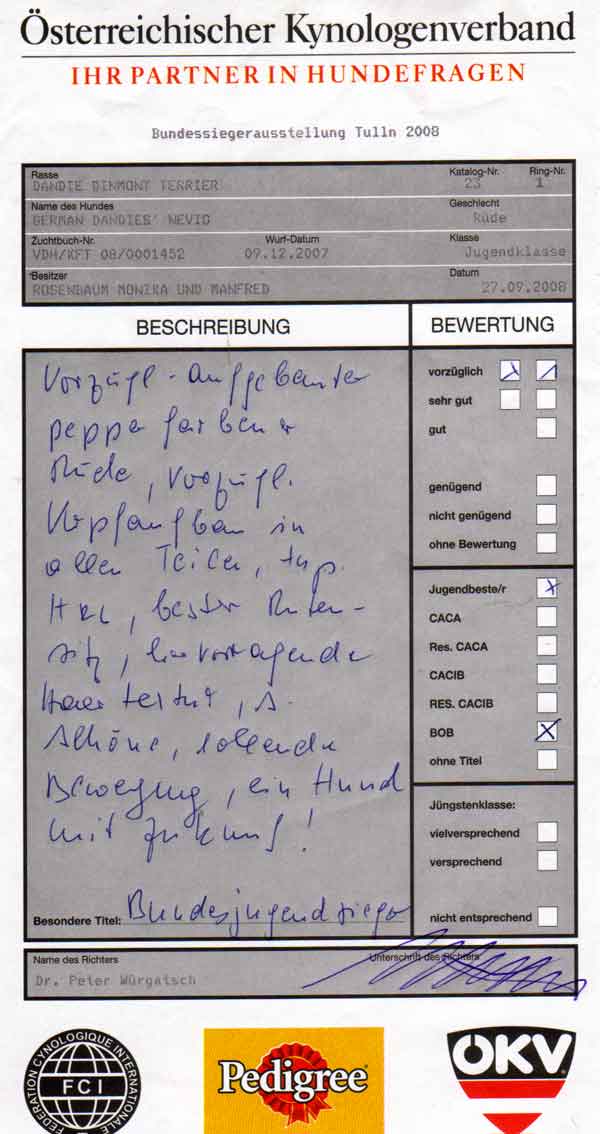 Österreichischer Kynologenverband
IHR PARTNER IN HUNDEFRAGEN
Bundessiegerausstellung Tulln 2008
Rasse Katalog-Nr. Ring-Nr.
DANDIE DINMONT TERRIER 23 1
Name des Hundes Geschlecht
GERMAN DANDIES' NEVIO Rüde
Zuchtbuch-Nr. Wurf-Datum Klasse
VDH/KFT 08/0001452 09.12.2007 Jugendklasse
Besitzer Datum
ROSENBAUM MONIKA UND MANFRED 27.09.2008
BESCHREIBUNG
Vorzügl. aufgebauter
pepperfarbener
Rüde, vorzügl.
Kopfaufbau in
allen Teilen, typ.
bester Ruten-
sitz, hervorragende
Haartextur, s.
schöne,
Bewegung, ein Hund
mit Zukunft!
Besondere Titel: Bundesjugendsieger
BEWERTUNG
vorzüglich
sehr gut
gut
genügend
nicht genügend
ohne Bewertung
Jugendbeste/r
CACA
Res. CACA
CACIB
RES. CACIB
BOB
ohne Titel
Jüngstenklasse:
vielversprechend
versprechend
nicht entsprechend
Name des Richters Unterschrift des Richters
Dr. Peter Würgatsch
FEDERATION CYNOLOGIQUE INTERNATIONALE
FCI
Pedigree
ÖKV